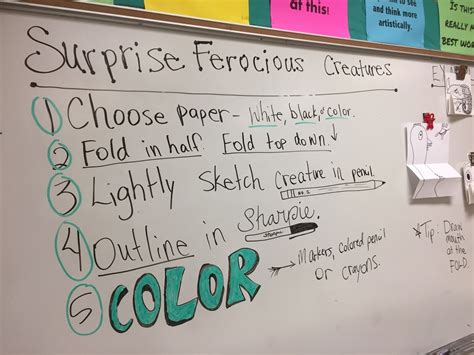 at this!
to see
and think more
artistically.
IS THIS
REALLY MY
BEST WORK
Surprise Ferocious Creatures
1 Choose paper - White, black, or color.
2 Fold in half. Fold top down.
3 Lightly Sketch Creature in pencil.
4 Outline in Sharpie.
Sharpie
5 COLOR
Markers, colored pencil
or crayons.
*Tip: Draw
mouth
at the
FOLD.